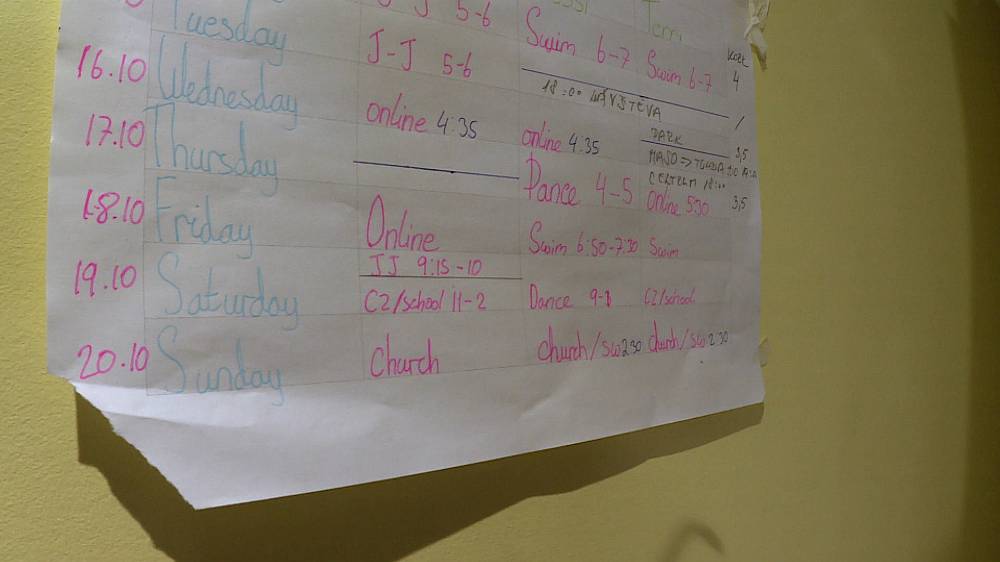 Tuesday J-J 5-6
Terri
16.10 Wednesday J-J 5-6 Swim 6-7 Swim 6-7 4
18:00 NÁVŠTEVA
17.10 Thursday online 4:35 online 4:35 DARK 3,5
MASO =>
Dance 4-5 online 5:30 3,5
18.10 Friday Online Swim 6:50-7:30 Swim
19.10 Saturday JJ 9:15-10
CZ/school 11-2 Dance 9-1 CZ/school
20.10 Sunday Church church/sw 2:30 church/sw 2:30